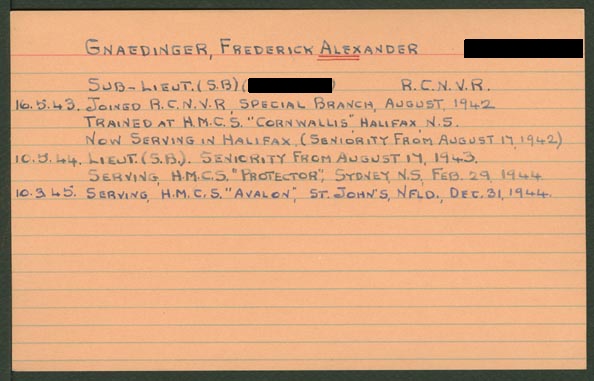 GNAEDINGER, FREDERICK ALEXANDER
SUB-LIEUT. (S.B) ( ) R.C.N.V.R.
16.5.43. JOINED R.C.N.V.R, SPECIAL BRANCH, AUGUST, 1942
TRAINED AT H.M.C.S. "CORNWALLIS", HALIFAX, N.S.
NOW SERVING IN HALIFAX, (SENIORITY FROM AUGUST 17, 1942)
10.5.44. LIEUT. (S.B.). SENIORITY FROM AUGUST 17, 1943.
SERVING, H.M.C.S. "PROTECTOR", SYDNEY, N.S, FEB. 29, 1944
10.3.45. SERVING, H.M.C.S. "AVALON", ST. JOHN'S, NFLD., DEC. 31, 1944.